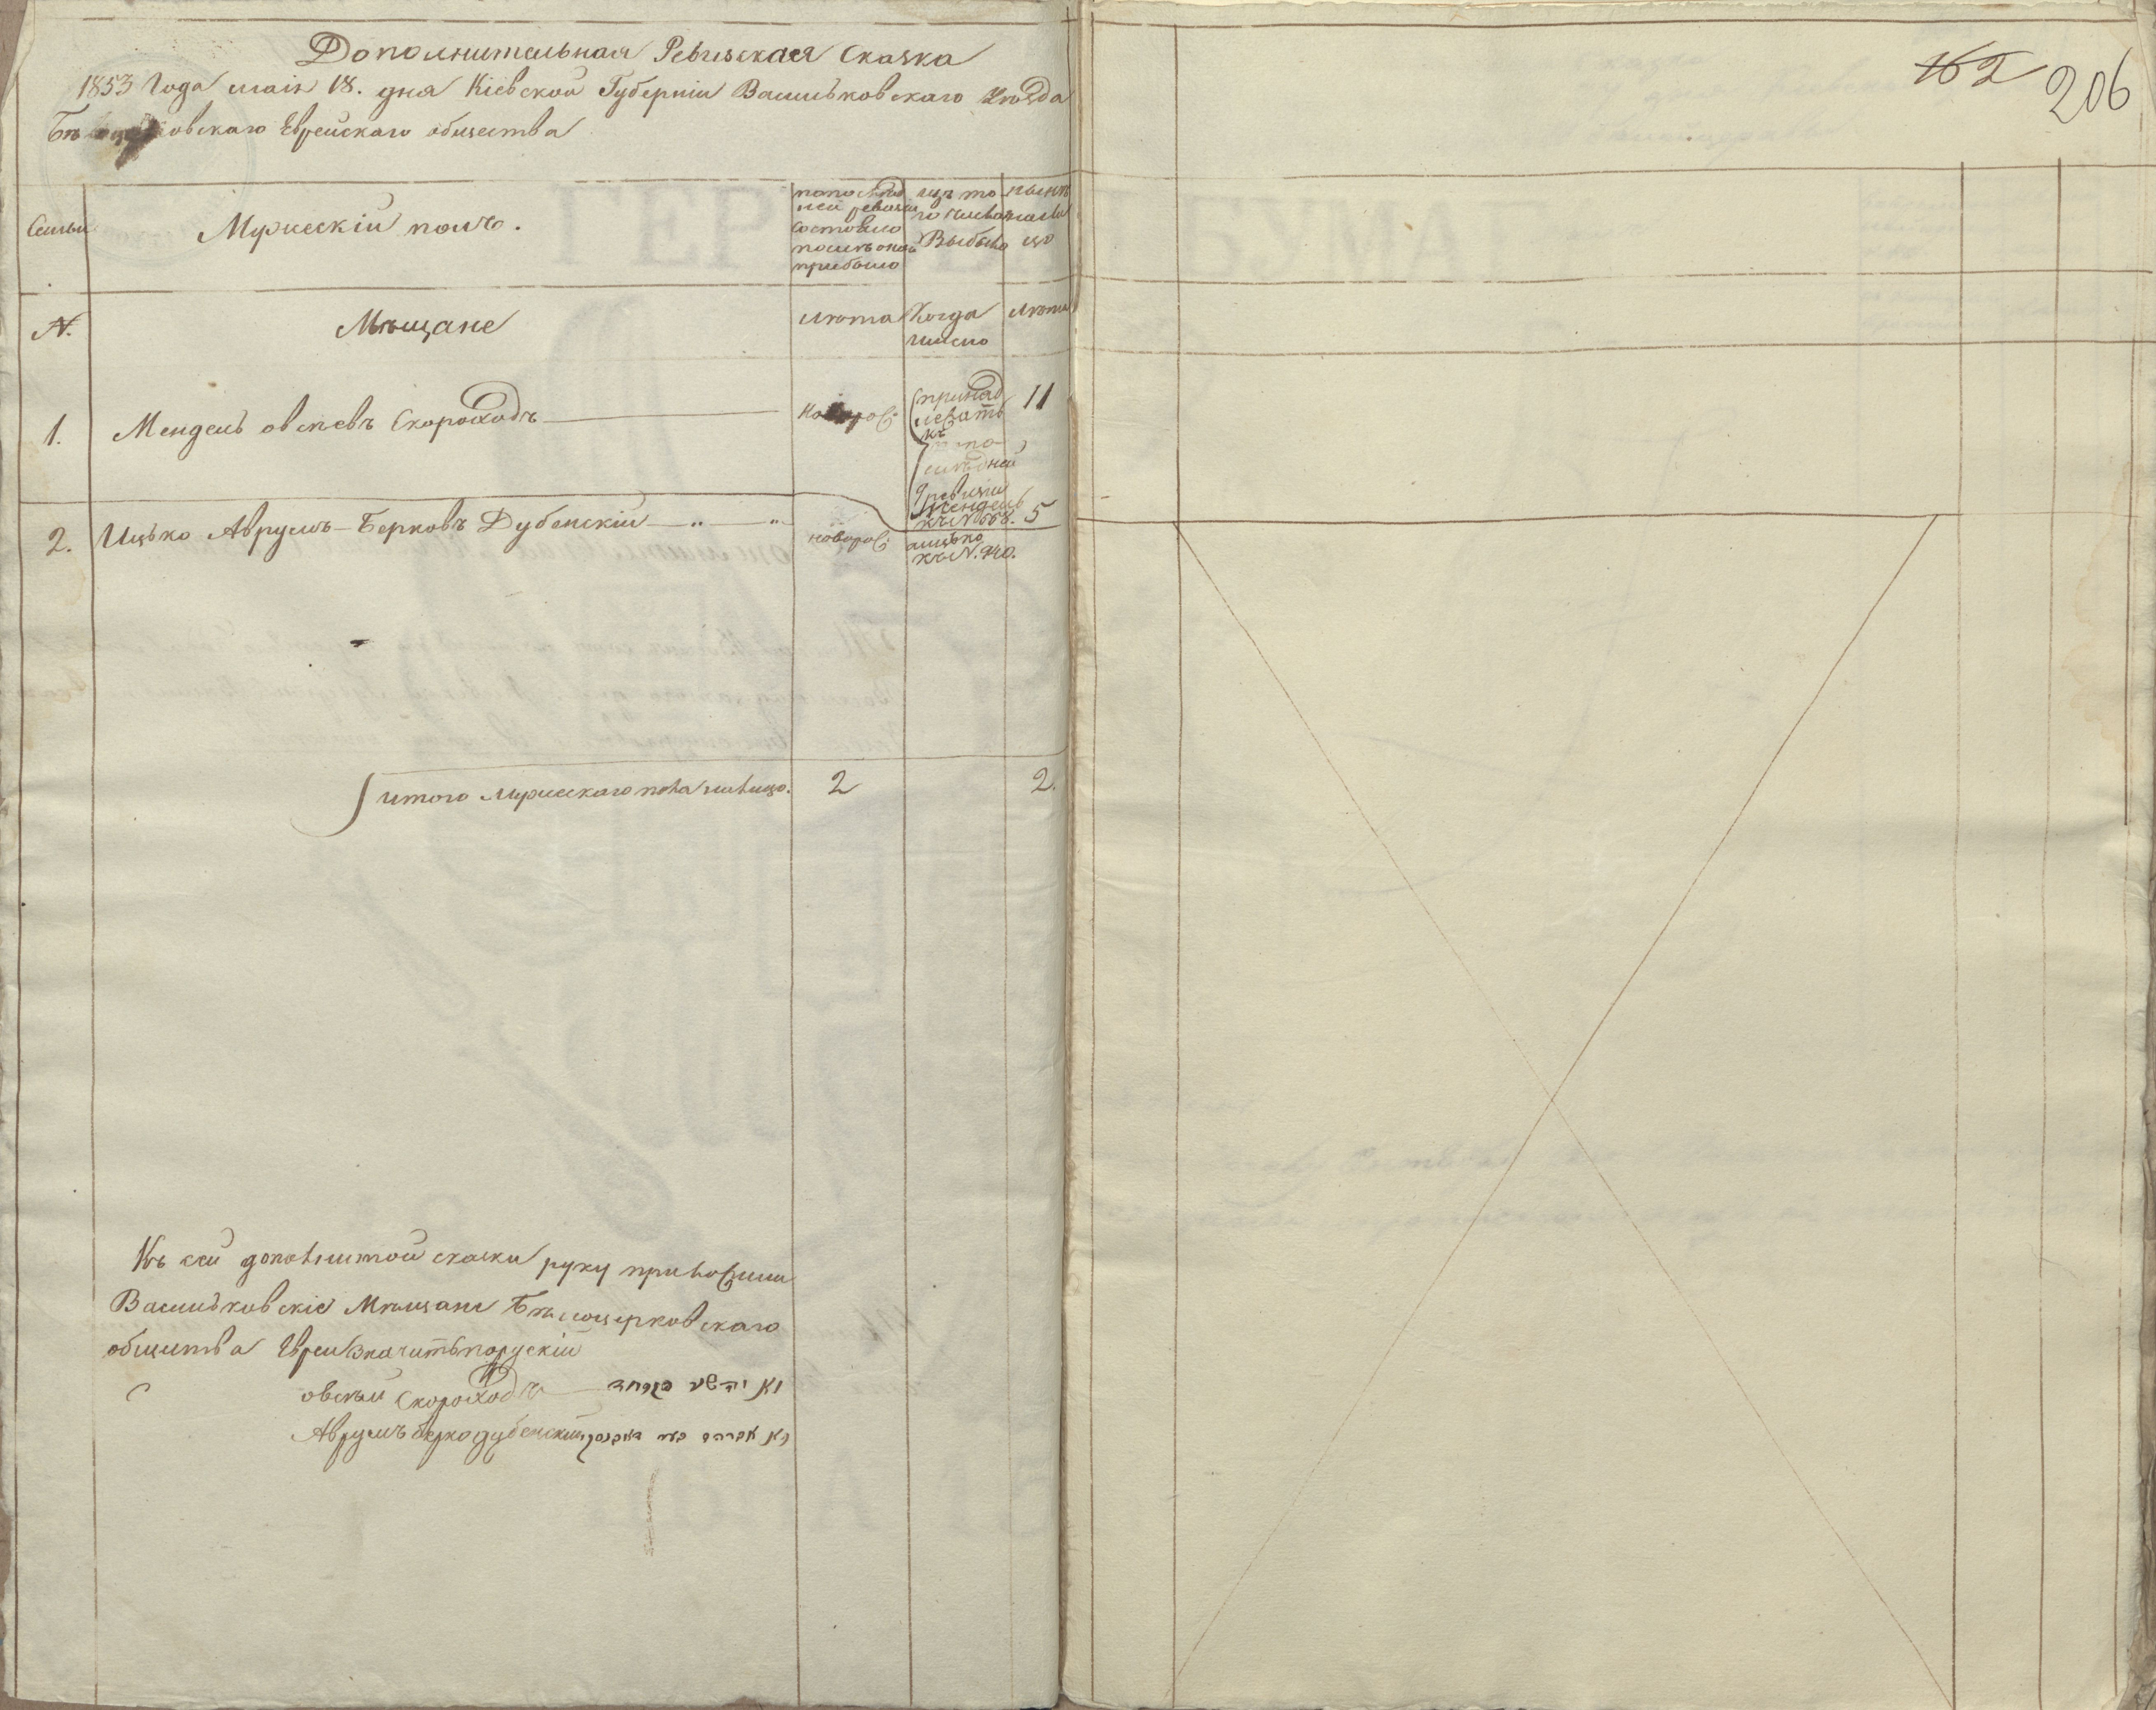 Дополнительная Ревизская Сказка
1853 Года маія 18. дня Кіевской Губерніи Васильковскаго Уѣзда
овскаго Еврейскаго общества
162
206
Семьи
Мужескій полъ.
по послѣд
ней ревизіи
состояло
и послѣ оной
прибыло
изъ то
го числа
Выбыло
нынѣ
на ли
цо
№.
Мѣщане
лѣта
Когда
имѣнно
лѣта
1.
Мендель овсѣевъ Скороходъ
принад
лежатъ
къ
по
слѣдней
ревизіи
Мендель
къ № 558.
11
2.
Ицько Аврумъ-Берковъ Дубенскій — „ — „
новорож:
аицько
къ №. 940.
5
итого мужескаго пола налицо.
2
2.
Къ сей дополнитой сказки руку приложили
Васильковскіе Мѣщане Бѣлоцерковскаго
общитва Евреи значитъ порускій
овсѣй Скороходъ
Аврумъ берко дубенскій